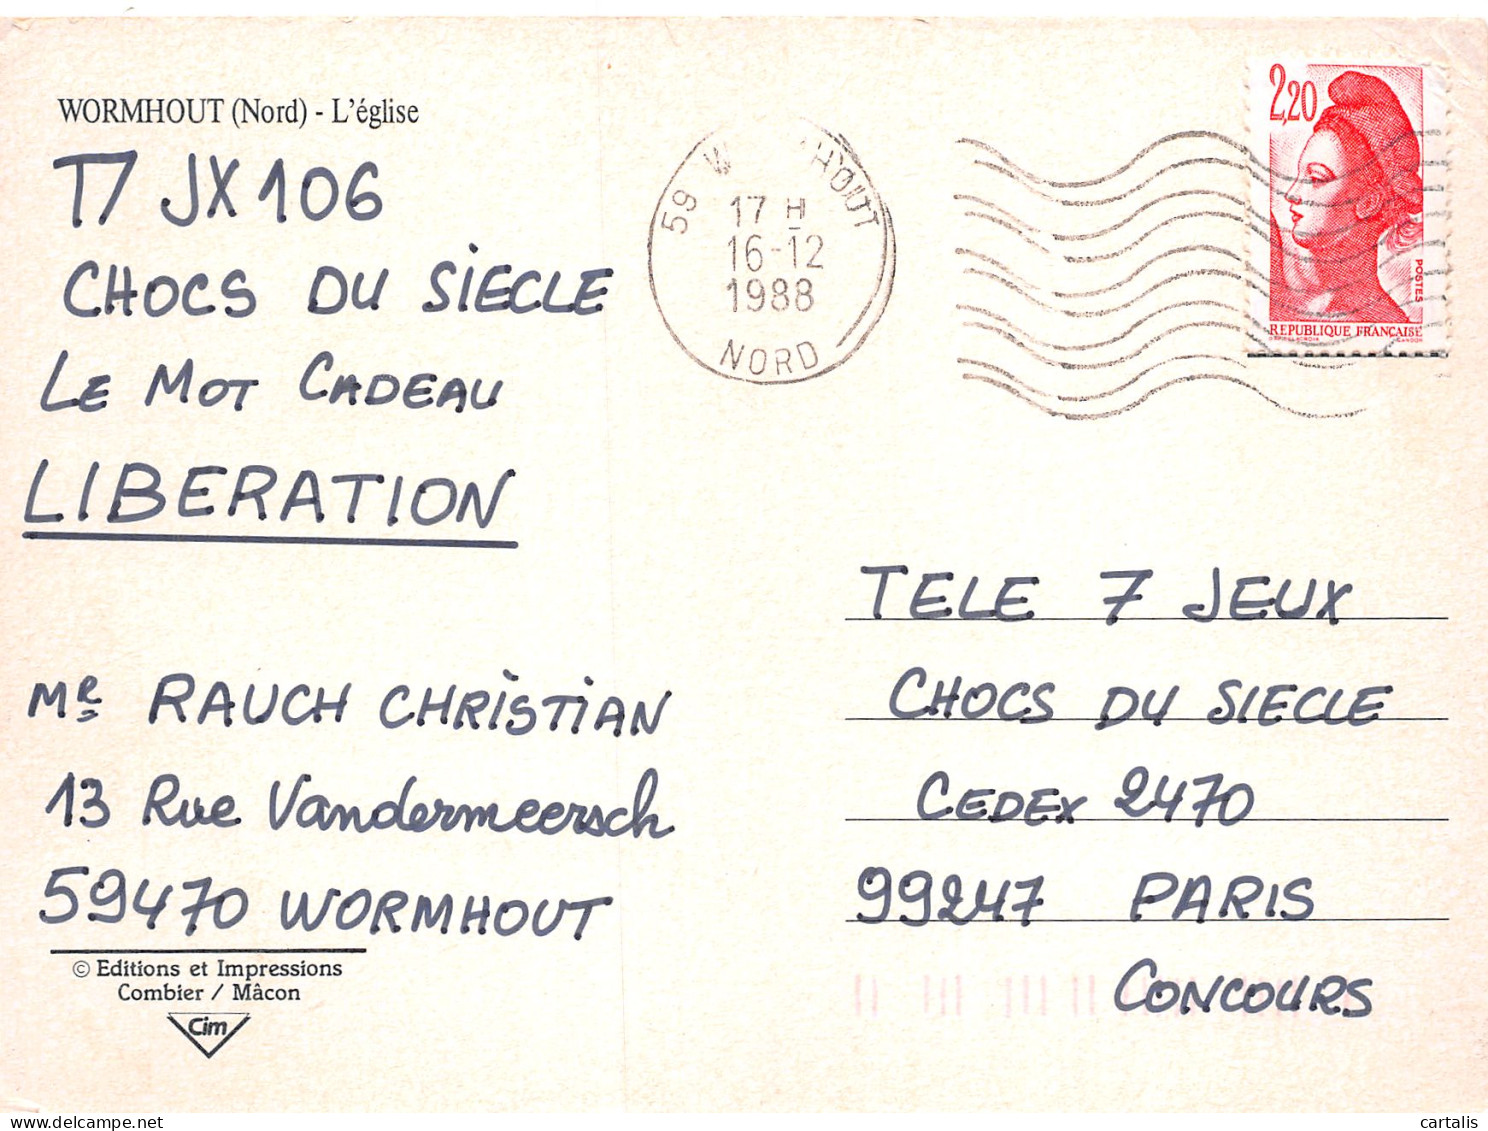 WORMHOUT (Nord) - L'église
T7 JX 106
CHOCS DU SIECLE
LE MOT CADEAU
LIBERATION
Mr RAUCH CHRISTIAN
13 Rue Vandermeersch
59470 WORMHOUT
© Editions et Impressions
Combier / Mâcon
Cim
59 W HOUT
17 H
16-12
1988
NORD
2,20
POSTES
REPUBLIQUE FRANÇAISE
TELE 7 JEUX
CHOCS DU SIECLE
CEDEX 2470
99247 PARIS
CONCOURS
cartalis